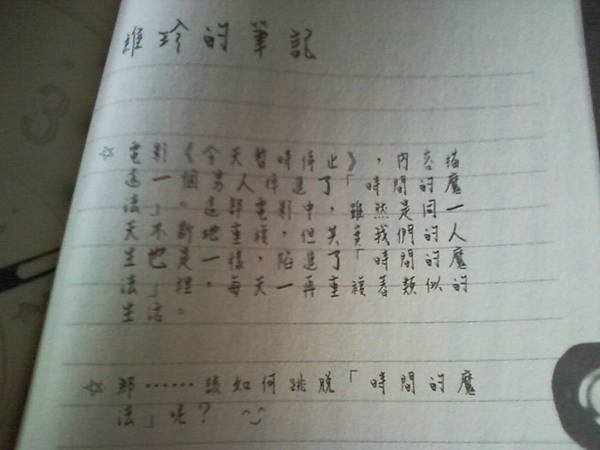 維珍的筆記
☆電影《今天暫時停止》，內容描
述一個男人掉進了「時間的魔
法」。這部電影中，雖然是同一
天不斷地重複，但其實我們的人
生也是一樣，陷進了「時間的魔
法」裡，每天一再重複著類似的
生活。
☆那……該如何跳脫「時間的魔
法」呢？